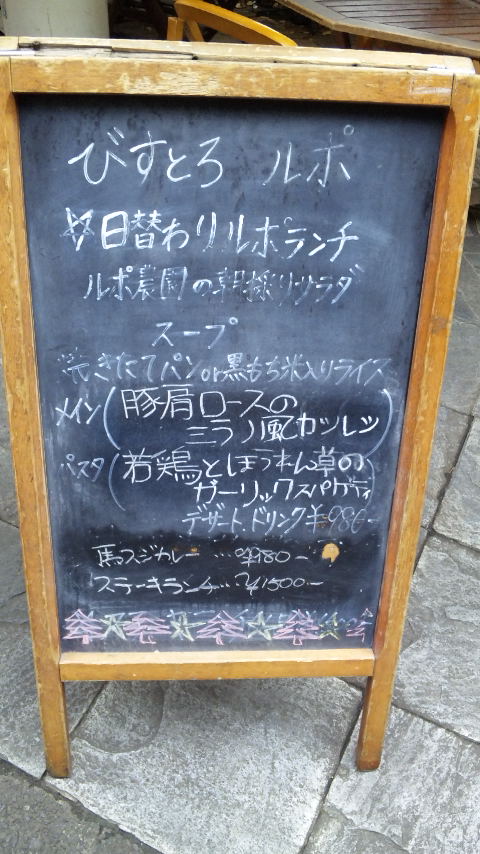 びすとろ ルポ
☆日替わりルポランチ
ルポ農園の朝採りサラダ
スープ
焼きたてパンor黒もち米入りライス
メイン(豚肩ロースの
ミラノ風カツレツ)
パスタ(若鶏とほうれん草の
ガーリックスパゲティ)
デザート、ドリンク ¥980-
馬スジカレー … ¥980-
ステーキランチ… ¥1500-